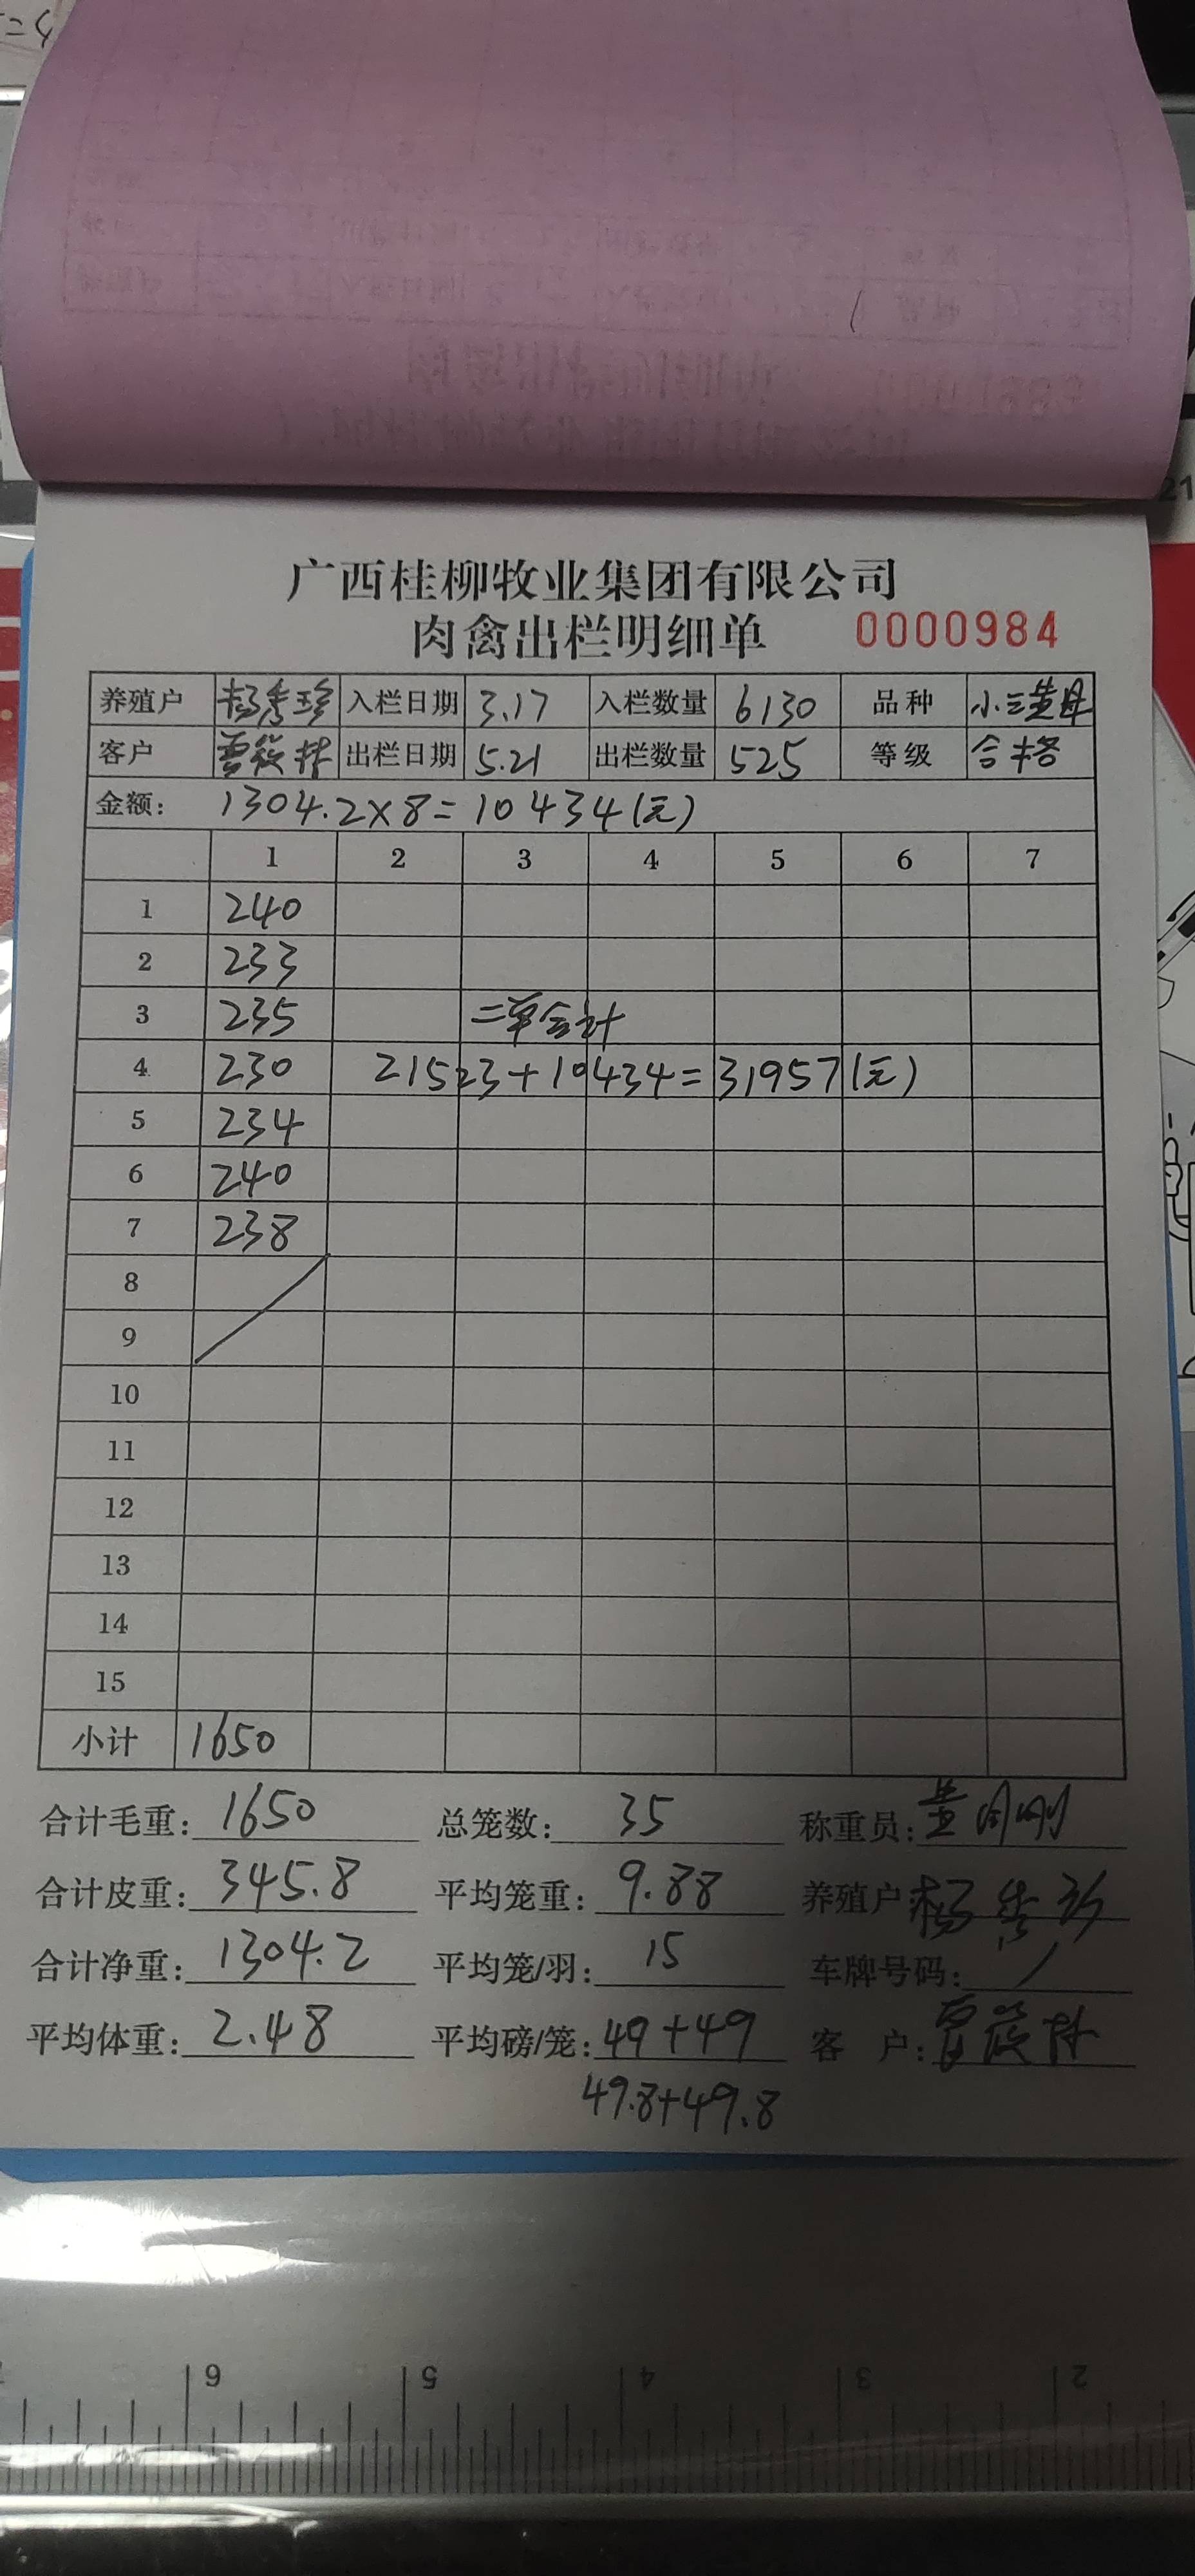 广西桂柳牧业集团有限公司
肉禽出栏明细单 0000984
养殖户 杨秀珍 入栏日期 3.17 入栏数量 6130 品种 小三黄母
客户 出栏日期 5.21 出栏数量 525 等级 合格
金额: 1304.2×8=10434(元)
1 2 3 4 5 6 7
1 240
2 233
3 235 二单合计
4 230 21523+10434=31957(元)
5 234
6 240
7 238
8
9
10
11
12
13
14
15
小计 1650
合计毛重: 1650 总笼数: 35 称重员:
合计皮重: 345.8 平均笼重: 9.88 养殖户 杨秀珍
合计净重: 1304.2 平均笼/羽: 15 车牌号码: /
平均体重: 2.48 平均磅/笼: 49+49 客 户:
49.8+49.8
6 5 4 3 2